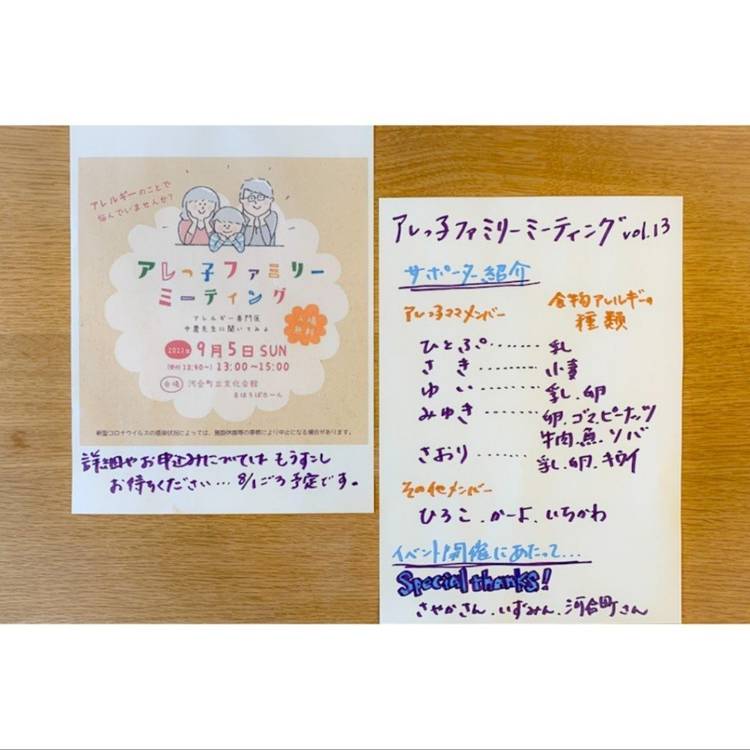 アレルギーのことで
悩んでいませんか?
アレっ子ファミリー
ミーティング
アレルギー専門医
中農先生に聞いてみよ
入場
無料
2021年 9月5日 SUN
(受付12:40〜) 13:00〜15:00
会場 河合町立文化会館
まほろばホール
新型コロナウイルスの感染状況によっては、施設休館等の事態により中止になる場合があります。
詳細やお申込みについては もうすこし
お待ちください… 8/1ごろ予定です。
アレっ子ファミリーミーティング vol.13
サポーター紹介
アレっ子ママメンバー
食物アレルギーの
種類
ひとぷ………乳
さき………小麦
ゆい………乳.卵
みゆき………卵.ゴマ.ピーナッツ
牛肉.魚.ソバ
さおり………乳.卵.キウイ
その他メンバー
ひろこ.かーよ.いちかわ
イベント開催にあたって…
Special thanks!
さやかさん.いずみん.河合町さん